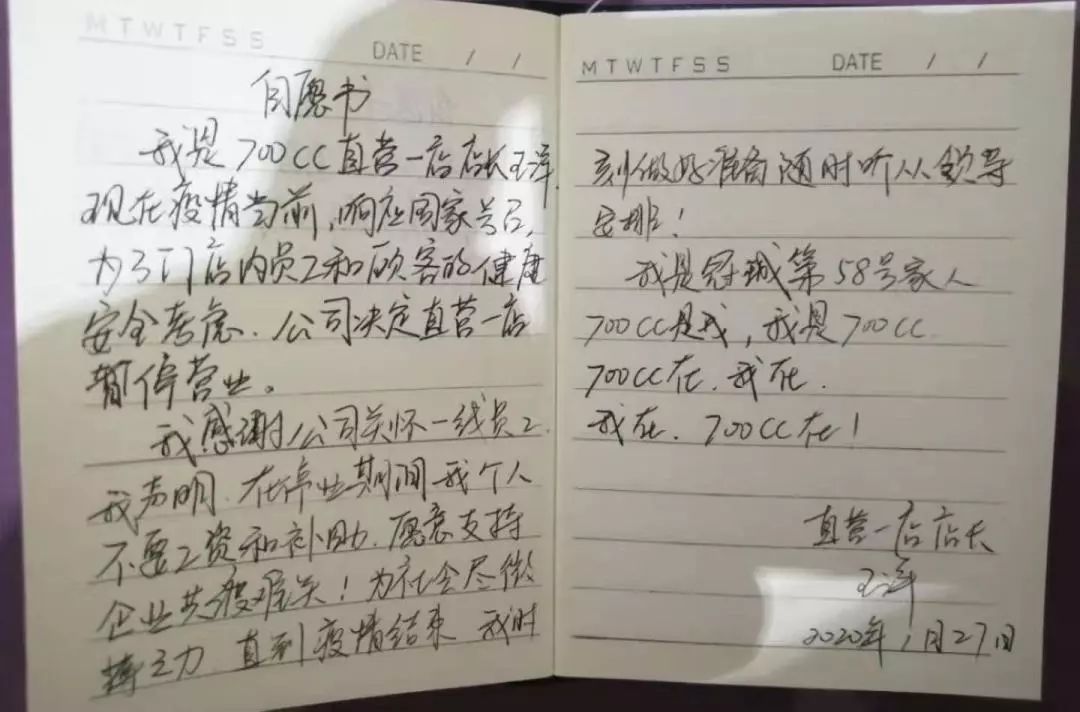 M T W T F S S DATE / /
自愿书
我是700CC直营一店店长王泽.
现在疫情当前,响应国家号召,
为了门店内员工和顾客的健康
安全考虑.公司决定直营一店
暂停营业。
我感谢公司关怀一线员工.
我声明.在停业期间我个人
不要工资和补助.愿意支持
企业共渡难关!为社会尽微
薄之力 直到疫情结束 我时
M T W T F S S DATE / /
刻做好准备随时听从领导
安排!
我是冠城第58号家人
700CC是我,我是700CC.
700CC在.我在.
我在.700CC在!
直营一店店长
王泽
2020年1月27日